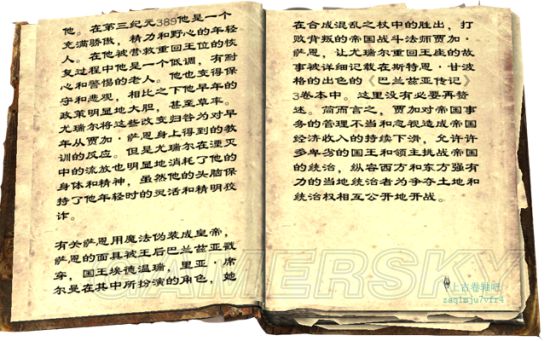 他。在第三纪元389他是一个
充满骄傲，精力和野心的年轻
人。在他被营救重回王位的恢
复过程中他是一个低调，有耐
心和警惕的老人。他也变得保
守和悲观，相比之下他早年的
政策明显地大胆，甚至草率。
尤瑞尔将这些改变归咎为对早
年从贾加·萨恩身上得到的教
训的反应。但是尤瑞尔在湮灭
中的流放也明显地消耗了他的
身体和精神，虽然他的头脑保
持了他年轻时的灵活和精明狡
诈。
有关萨恩用魔法伪装成皇帝，
萨恩的面具被王后巴兰兹亚戳
穿，国王埃德温瑞，里亚·席
尔曼在其中所扮演的角色，她
在合成混乱之杖中的胜出，打
败背叛的帝国战斗法师贾加·
萨恩，让尤瑞尔重回王座的故
事被详细记载在斯特恩·甘波
格的出色的《巴兰兹亚传记》
3卷本中。这里没有必要再赘
述。简而言之，贾加对帝国事
务的管理不当和忽视造成帝国
经济收入的持续下滑，允许许
多卑劣的国王和领主挑战帝国
的统治，纵容西方和东方强有
力的当地统治者为争夺土地和
统治权相互公开地开战。
GAMERSKY
上古卷轴吧
zaq1mju7vfr4